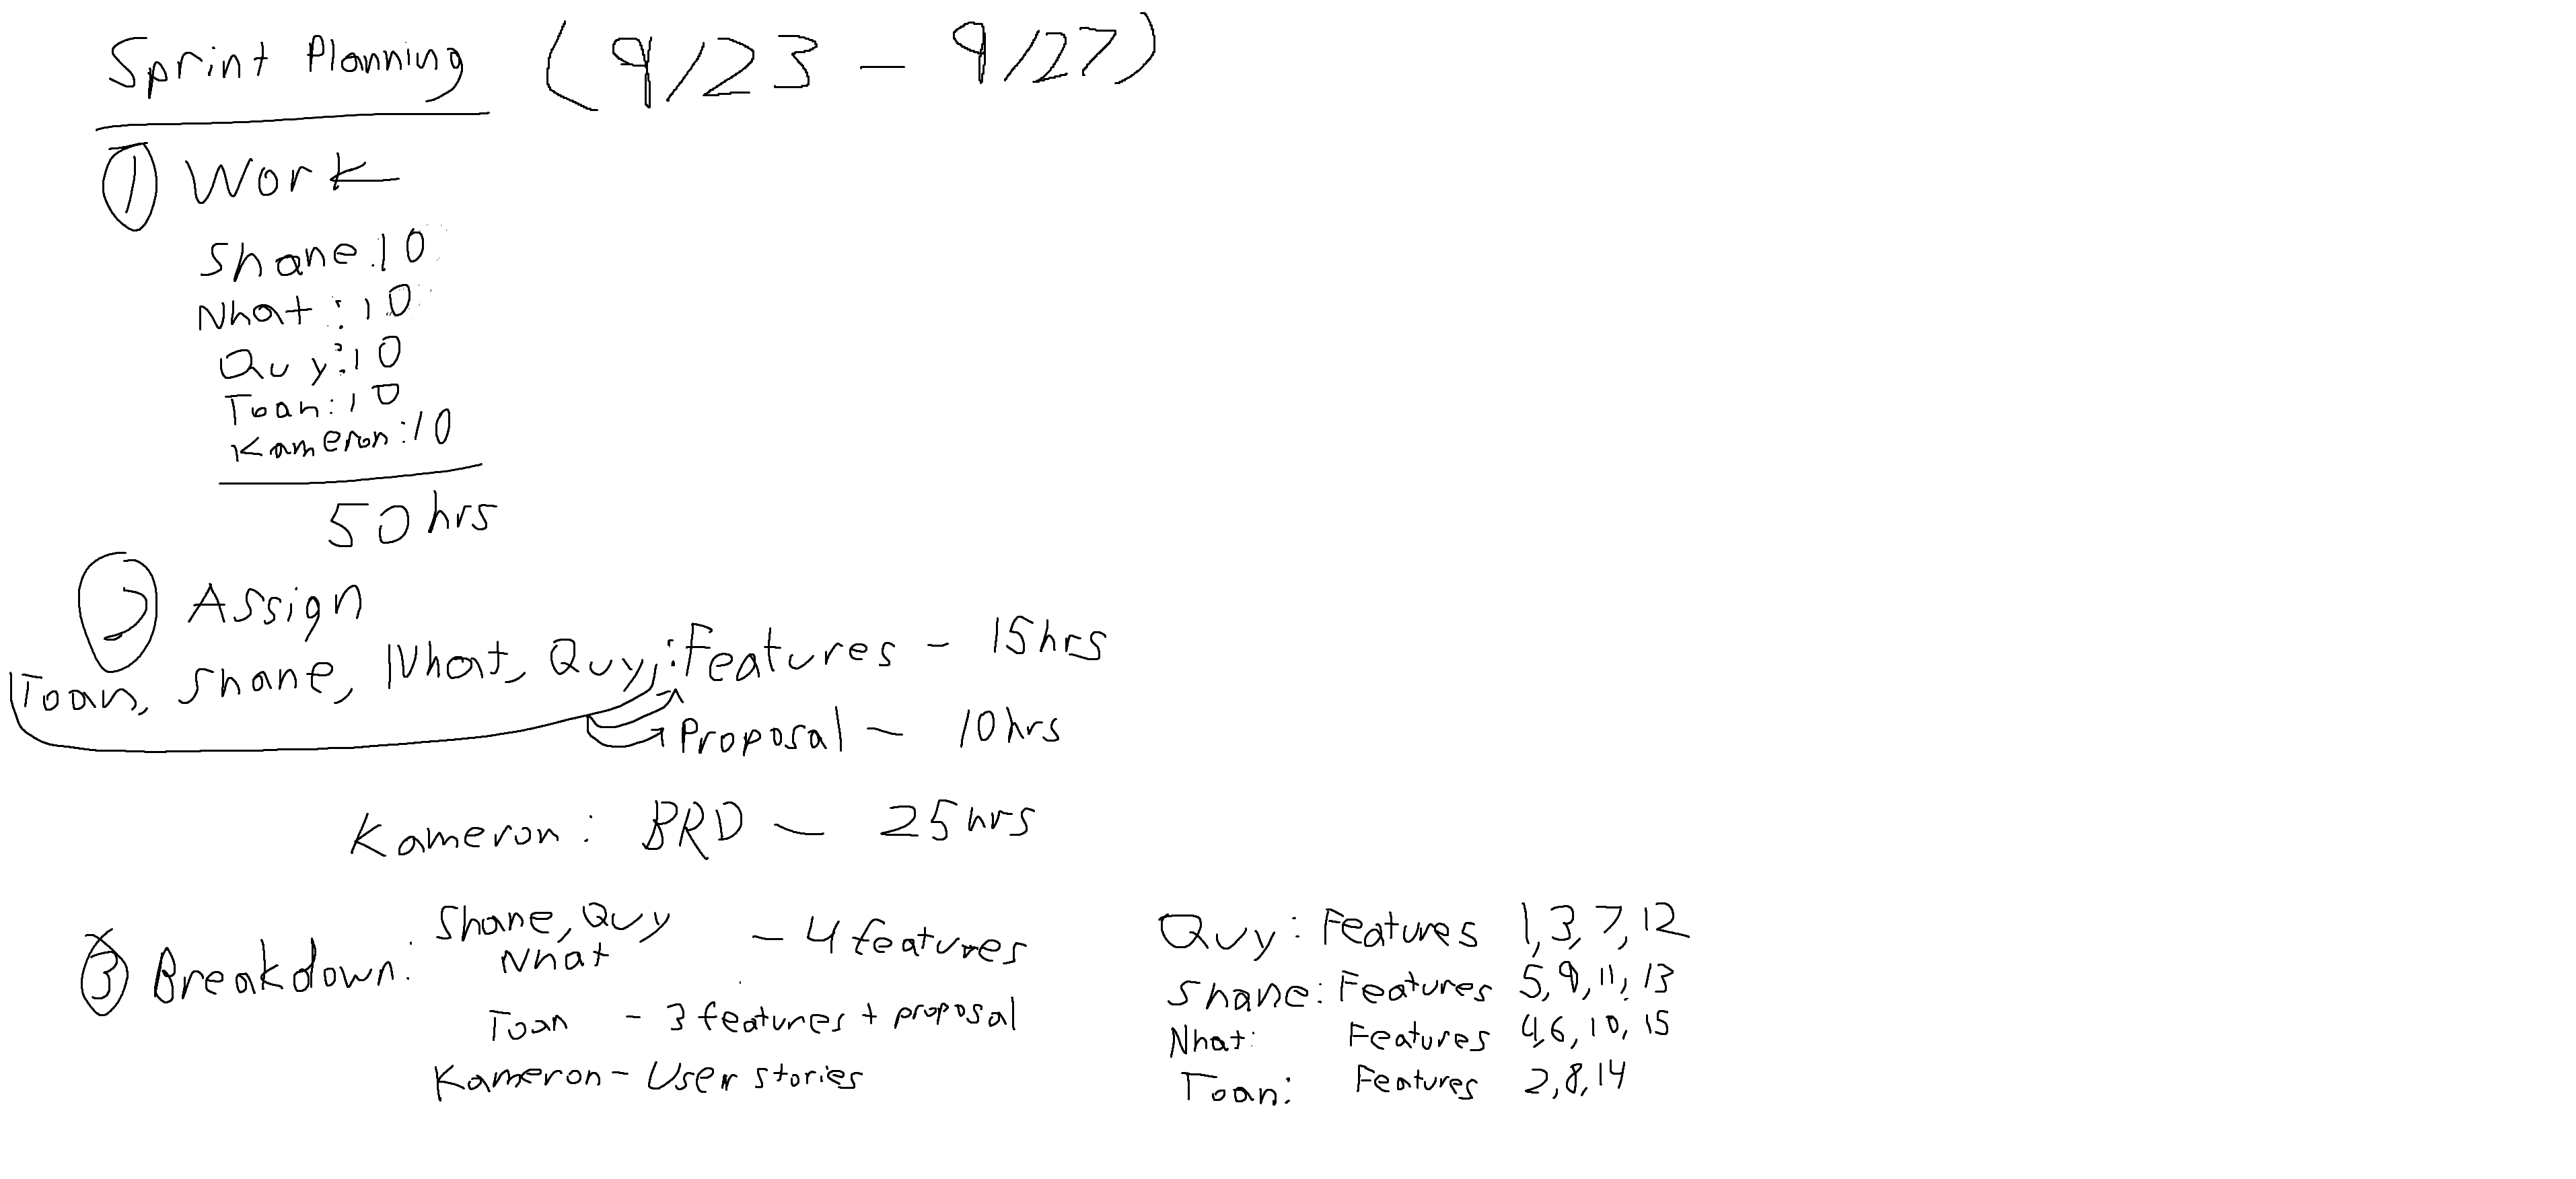 Sprint Planning (9/23 - 9/27)
① Work
Shane:10
Nhat:10
Quy:10
Toan:10
Kameron:10
50 hrs
② Assign
Toan, Shane, Nhat, Quy,:Features - 15hrs
Proposal - 10hrs
Kameron: BRD - 25hrs
③ Breakdown:
Shane, Quy
Nhat
- 4 features
Toan - 3 features + proposal
Kameron - User stories
Quy: Features 1, 3, 7, 12
Shane: Features 5, 9, 11, 13
Nhat: Features 4, 6, 10, 15
Toan: Features 2, 8, 14